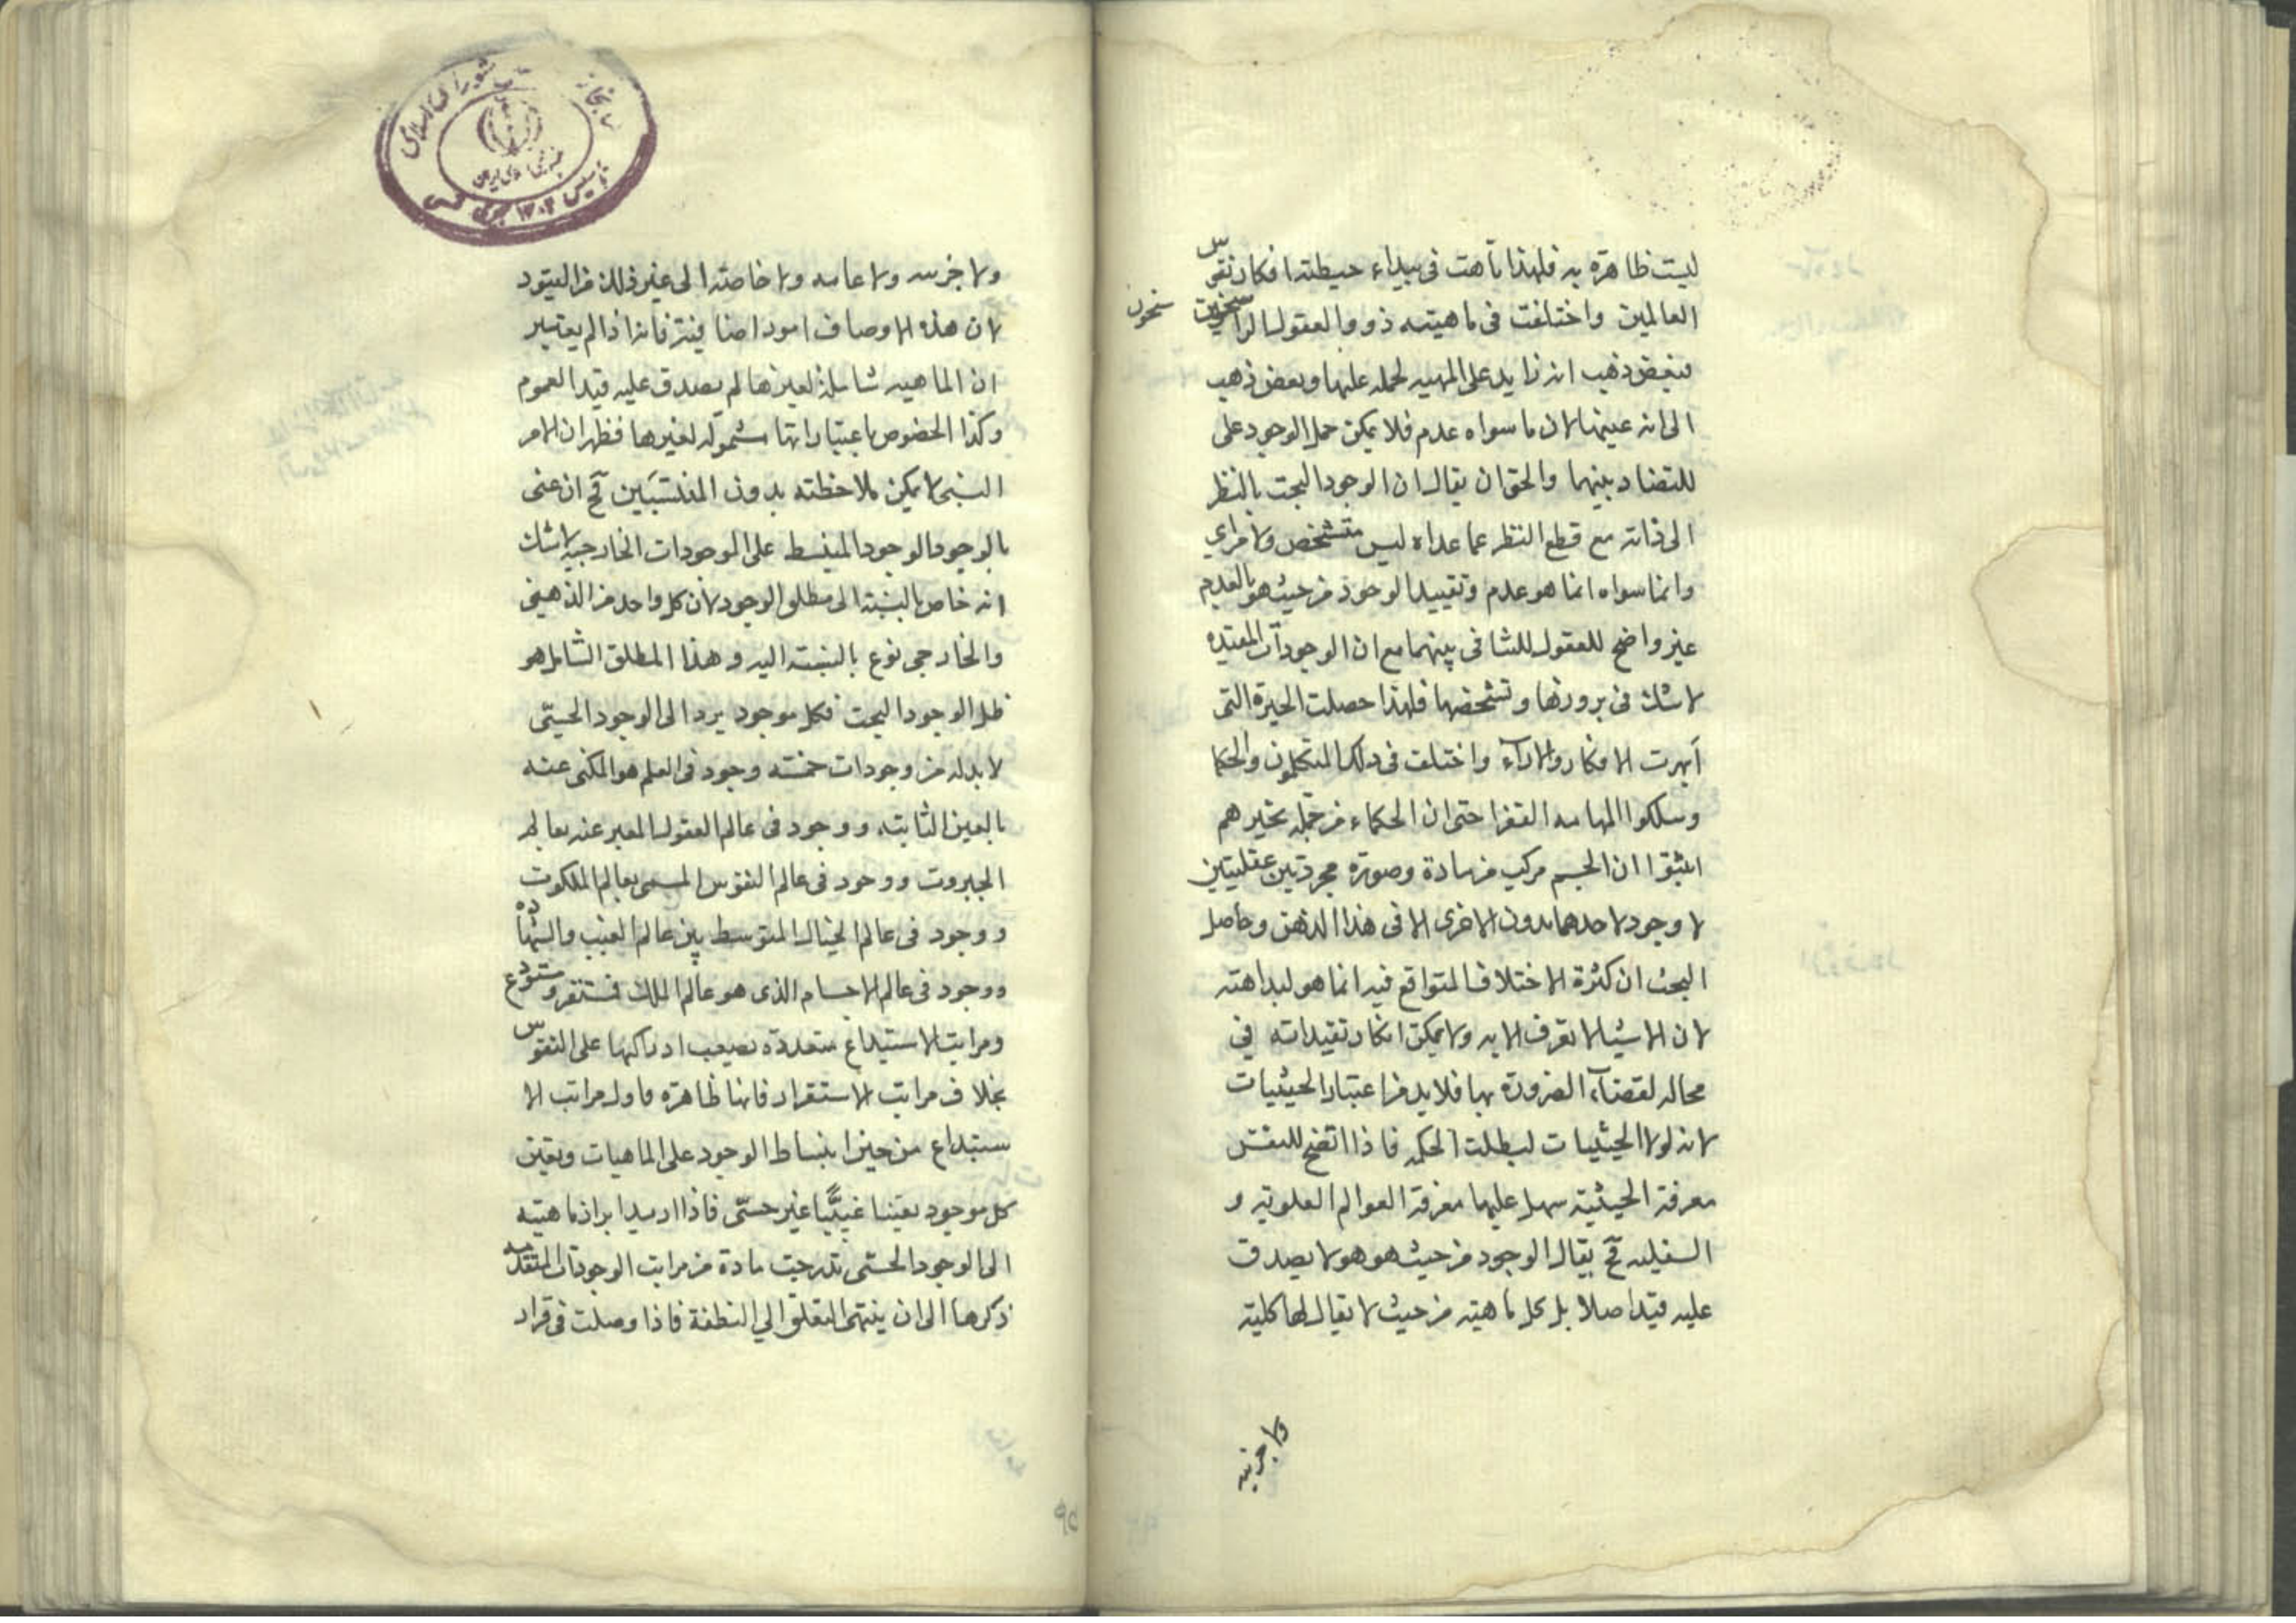 ليست ظاهرة به فلهذا تاهت في بيداء حيطتها افكار نفوس
العالمين واختلفت في ماهيته ذووا العقول الراسخين
سخون
فبعض ذهب انه زايد على المهيه لحمله عليها وبعض ذهب
الى انه عينها لان ما سواه عدم فلا يمكن حمل الوجود على
للتضاد بينهما والحق ان يقال ان الوجود البحت بالنظر
الى ذاته مع قطع النظر عما عداه ليس متشخص ولا مرأي
وانما سواه انما هو عدم وتقييد الوجود من حيث هو بالعدم
غير واضح للعقول للتنافي بينهما مع ان الوجودات المقيده
لا شك في بروزها وتشخصها فلهذا حصلت الحيرة التي
أبهرت الافكار والاراء واختلف في ذلك المتكلمون والحكما
وسلكوا المهامه القفرا حتى ان الحكماء من جمله تحيرهم
اثبتوا ان الجسم مركب من مادة وصورة مجردتين عقليتين
لا وجود لاحدهما بدون الاخرى الا في هذا الذهن وحاصل
البحث ان كثرة الاختلاف المتواقع فيه انما هو لبداهته
لان الاشيا لا تعرف الا به ولا يمكن انكار تقيداته في
محاله لقضاء الضرورة بها فلا بد من اعتبار الحيثيات
لانه لولا الحيثيات لبطلت الحكمه فاذا اتضح للنفس
معرفة الحيثية سهل عليها معرفة العوالم العلوية و
السفليه فح يقال الوجود من حيث هو هو لا يصدق
عليه قيد اصلا بل كل ماهية من حيث لا يقال لها كلية
ولا جزئيه
ولا جزئيه ولا عامه ولا خاصة الى غير ذلك من القيود
لان هذه الاوصاف امور اضافية فانه اذا لم يعتبر
ان الماهيه شاملة لغيرها لم يصدق عليه قيد العموم
وكذا الخصوص باعتبار انها مشمولة لغيرها فظهر ان الامر
النسبي لا يمكن ملاحظته بدون المنتسبين فح ان عنى
بالوجود الوجود المنبسط على الموجودات الخارجيه لا شك
انه خاص بالنسبة الى مطلق الوجود لان كل واحد من الذهني
والخارجي نوع بالنسبة اليه وهذا المطلق الشامل هو
ظل الوجود البحت فكل موجود يرد الى الوجود الحسّي
لا بد له من وجودات خمسة وجود في العلم هو المكنى عنه
بالعين الثابته ووجود في عالم العقول المعبر عنه بعالم
الجبروت ووجود في عالم النفوس المسمى بعالم الملكوت
ووجود في عالم الخيال المتوسط بين عالم الغيب والشهاده
ووجود في عالم الاجسام الذي هو عالم الملك فمستقر ومستودع
ومراتب الاستيداع متعددة يصعب ادراكها على النفوس
بخلاف مراتب الاستقرار فانها ظاهرة فاول مراتب الا
ستيداع من حين انبساط الوجود على الماهيات وتعين
كل موجود تعينا غيبيًّا غير حسّي فاذا اريد ابراز ماهيته
الى الوجود الحسّي تدرجت مادة من مراتب الوجودات المتقدمه
ذكرها الى ان ينتهى التعلق الى النطفة فاذا وصلت في قرار
٩٥
تأسيس ١٣٠٢ هجري شمسي